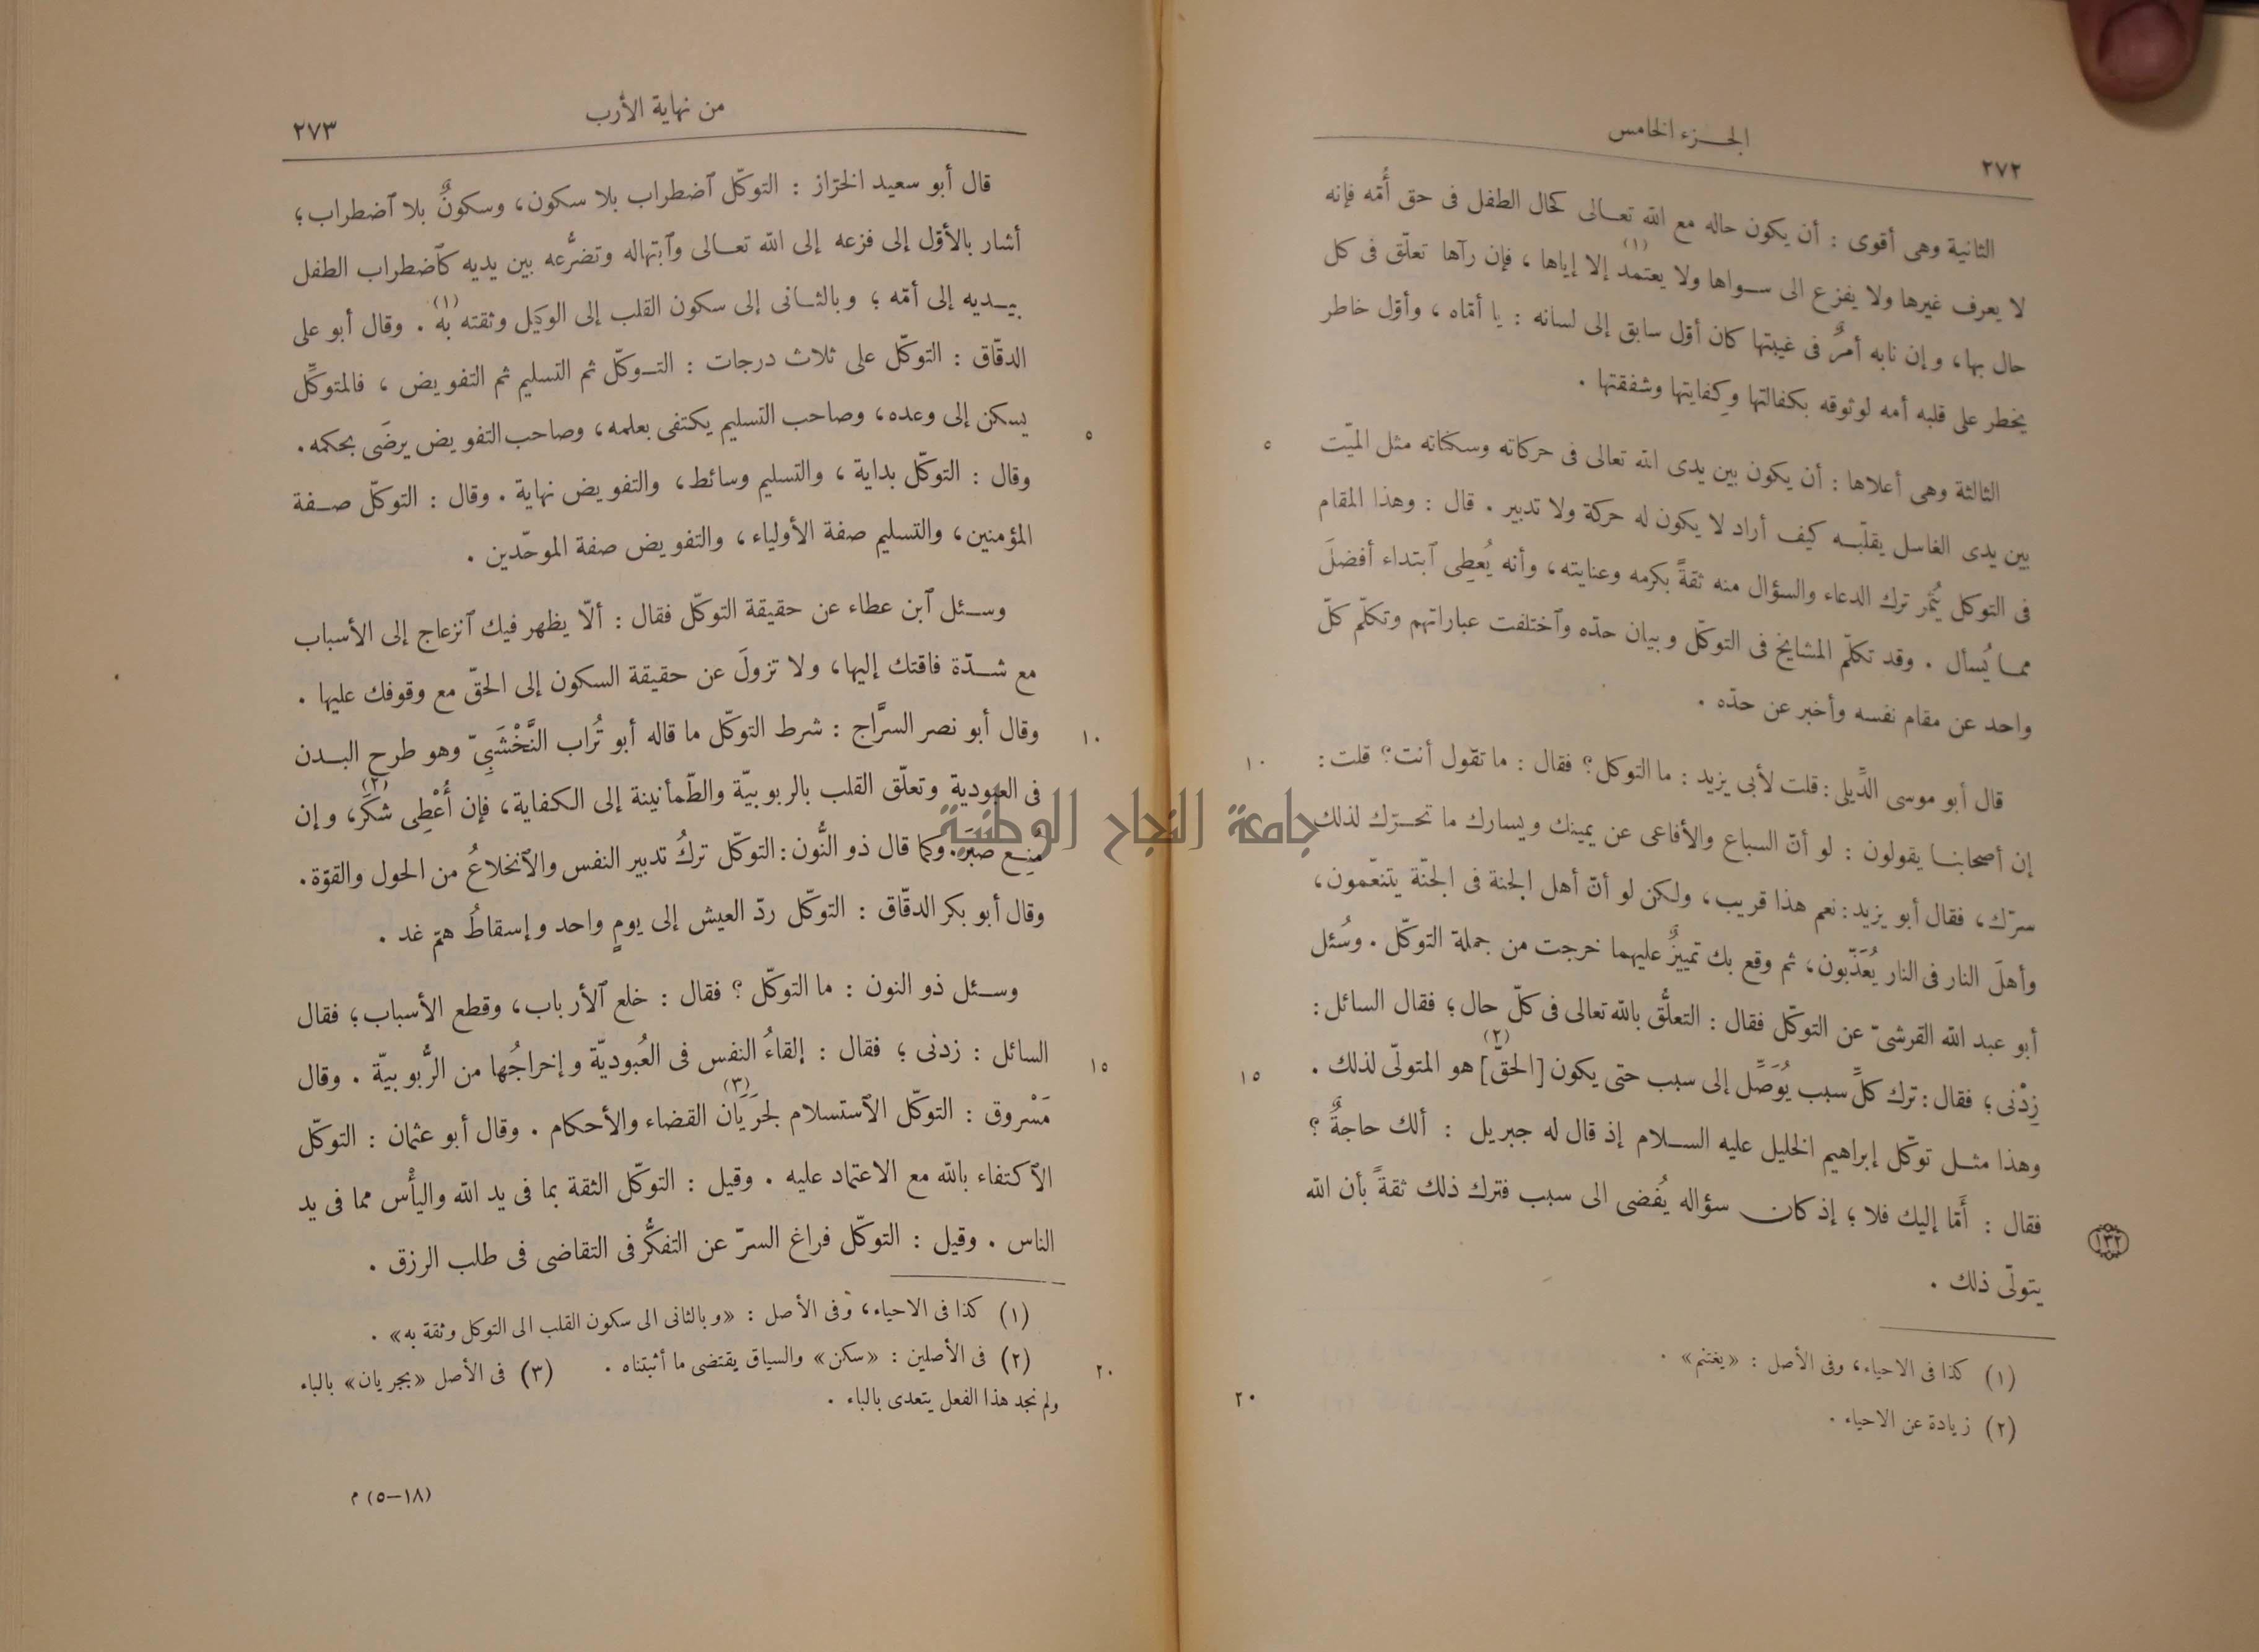 الجزء الخامس
٢٧٢
الثانية وهى أقوى : أن يكون حاله مع الله تعالى كحال الطفل فى حق أُمّه فإنه
لا يعرف غيرها ولا يفزع الى سواها ولا يعتمد (١) إلا إياها ، فإن رآها تعلّق فى كل
حال بها، وإن نابه أمرٌ فى غيبتها كان أوّل سابق إلى لسانه : يا أمّاه ، وأوّل خاطر
يخطر على قلبه أمه لوثوقه بكفالتها وكِفايتها وشفقتها .
٥
الثالثة وهى أعلاها : أن يكون بين يدى الله تعالى فى حركاته وسكناته مثل الميّت
بين يدى الغاسل يقلّبه كيف أراد لا يكون له حركة ولا تدبير . قال : وهذا المقام
فى التوكل يُثمر ترك الدعاء والسؤال منه ثقةً بكرمه وعنايته، وأنه يُعطِى ٱبتداء أفضلَ
مما يُسأل . وقد تكلّم المشايخ فى التوكّل وبيان حدّه وٱختلفت عباراتهم وتكلّم كلّ
واحد عن مقام نفسه وأخبر عن حدّه .
١٠
قال أبو موسى الدَّيلى : قلت لأبى يزيد : ما التوكل؟ فقال : ما تقول أنت؟ قلت :
إن أصحابنا يقولون : لو أنّ السباع والأفاعى عن يمينك ويسارك ما تحرّك لذلك
سرّك، فقال أبو يزيد : نعم هذا قريب، ولكن لو أنّ أهل الجنة فى الجنّة يتنعّمون،
وأهلَ النار فى النار يُعَذّبون، ثم وقع بك تمييزٌ عليهما خرجت من جملة التوكّل . وسُئل
أبو عبد الله القرشىّ عن التوكّل فقال : التعلُّق بالله تعالى فى كلّ حال؛ فقال السائل :
١٥
زِدْنى؛ فقال : ترك كلِّ سبب يُوَصِّل إلى سبب حتى يكون [الحقّ] (٢) هو المتولّى لذلك .
وهذا مثل توكّل إبراهيم الخليل عليه السلام إذ قال له جبريل : ألك حاجةٌ ؟
فقال : أمّا إليك فلا ؛ إذ كان سؤاله يُفضى الى سبب فترك ذلك ثقةً بأن الله
١٣٢
يتولّى ذلك .
(١) كذا فى الاحياء، وفى الأصل : «يغتنم» .
٢٠
(٢) زيادة عن الاحياء .
من نهاية الأرب
٢٧٣
قال أبو سعيد الخرّاز : التوكّل ٱضطراب بلا سكون، وسكونٌ بلا ٱضطراب؛
أشار بالأوّل إلى فزعه إلى الله تعالى وٱبتهاله وتضرُّعه بين يديه كٱضطراب الطفل
بيديه إلى أمّه ؛ وبالثانى إلى سكون القلب إلى الوكيل وثقته به (١) . وقال أبو على
الدقّاق : التوكّل على ثلاث درجات : التوكّل ثم التسليم ثم التفويض ، فالمتوكّل
٥
يسكن إلى وعده، وصاحب التسليم يكتفى بعلمه، وصاحب التفويض يرضَى بحكمه.
وقال : التوكّل بداية ، والتسليم وسائط، والتفويض نهاية . وقال : التوكّل صفة
المؤمنين، والتسليم صفة الأولياء، والتفويض صفة الموحّدين .
وسئل ٱبن عطاء عن حقيقة التوكّل فقال : ألّا يظهر فيك ٱنزعاج إلى الأسباب
مع شدّة فاقتك إليها، ولا تزولَ عن حقيقة السكون إلى الحقّ مع وقوفك عليها .
١٠
وقال أبو نصر السرَّاج : شرط التوكّل ما قاله أبو تُراب النَّخْشَبِىّ وهو طرح البدن
فى العبودية وتعلّق القلب بالربوبيّة والطّمأنينة إلى الكفاية، فإن أُعْطِى شَكَر (٢)، وإن
مُنِع صَبَر. وكما قال ذو النُّون : التوكّل تركُ تدبير النفس والٱنخلاعُ من الحول والقوّة.
وقال أبو بكر الدقّاق : التوكّل ردّ العيش إلى يومٍ واحد وإسقاطُ همّ غد .
وسئل ذو النون : ما التوكّل ؟ فقال : خلع ٱلأرباب، وقطع الأسباب؛ فقال
١٥
السائل : زدنى ؛ فقال : إلقاءُ النفس فى العُبوديّة وإخراجُها من الرُّبوبيّة . وقال
مَسْروق : التوكّل الٱستسلام لجَرَيَان (٣) القضاء والأحكام . وقال أبو عثمان : التوكّل
الٱكتفاء بالله مع الاعتماد عليه . وقيل : التوكّل الثقة بما فى يد الله واليأس مما فى يد
الناس . وقيل : التوكّل فراغ السرّ عن التفكُّر فى التقاضى فى طلب الرزق .
(١) كذا فى الاحياء، وفى الأصل : «وبالثانى الى سكون القلب الى التوكل وثقة به» .
٢٠
(٢) فى الأصلين : «سكن» والسياق يقتضى ما أثبتناه . (٣) فى الأصل «بجريان» بالباء
ولم نجد هذا الفعل يتعدى بالباء .
(١٨-٥) م
جامعة النجاح الوطنية